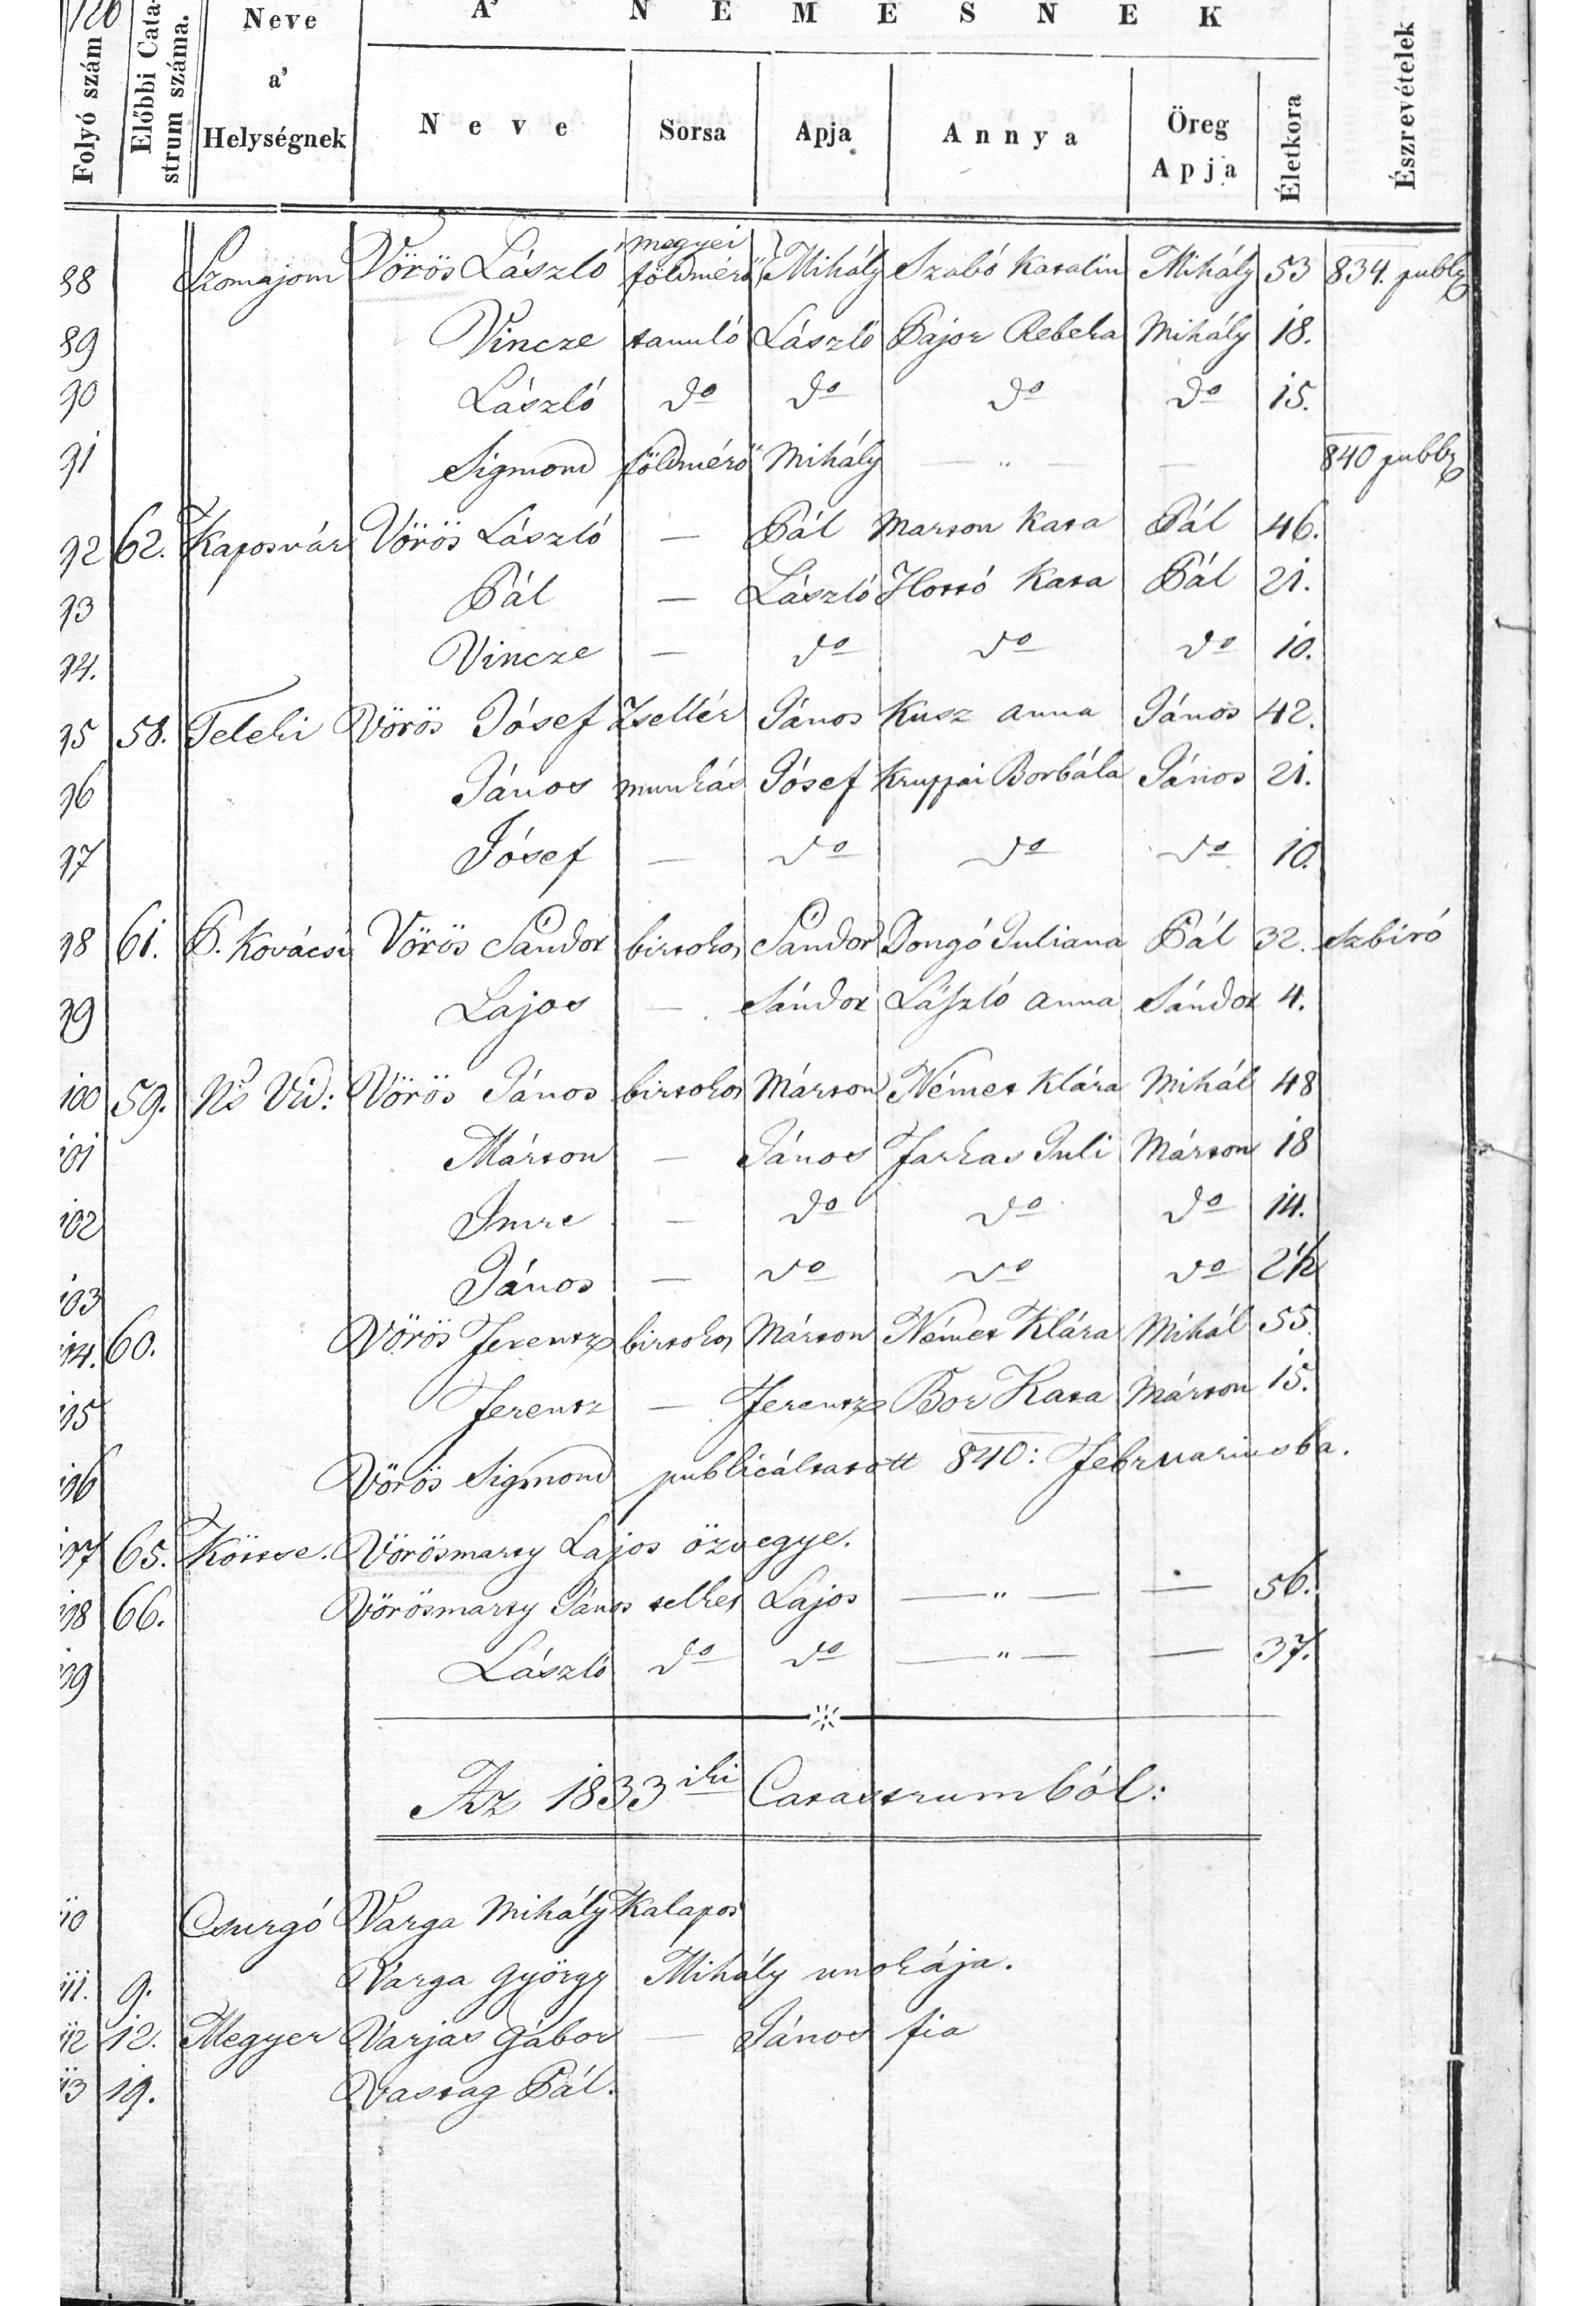 126
Folyó szám
Előbbi Cata-
strum száma.
Neve
a'
Helységnek
A' NEMESNEK
Neve
Sorsa
Apja
Annya
Öreg
Apja
Életkora
Észrevételek
88 Szomajom Vörös László megyei földmérő Mihály Szabó Katalin Mihály 53 834. publ
89 Vincze tanuló László Pajor Rebeka Mihály 18.
90 László do do do do 15.
91 Sigmond földmérő Mihály — " — — 840 publ
92 62. Kaposvár Vörös László — Pál Marton Kata Pál 46.
93 Pál — László Hottó Kata Pál 21.
94. Vincze — do do do 10.
95 58. Teleki Vörös Jósef Zsellér János Kusz Anna János 42.
96 János munkás Jósef Kruppai Borbála János 21.
97 Jósef — do do do 10.
98 61. P. Kovácsi Vörös Sándor birtokos Sándor Dongó Juliana Pál 32. Szbiró
99 Lajos — Sándor László Anna Sándor 4.
100 59. Ns Vid: Vörös János birtokos Márton Németh Klára Mihál 48
101 Márton — János Farkas Juli Márton 18
102 Imre — do do do 14.
103 János — do do do 2½
104. 60. Vörös Ferentz birtokos Márton Német Klára Mihál 55.
105 Ferentz — Ferentz Bor Kata Márton 15.
106 Vörös Sigmond publicáltatott 840: Februariusba.
107 65. Köttse. Vörösmarty Lajos özvegye.
108 66. Vörösmarty János telkes Lajos — " — — 56.
109 László do do — " — — 37.
Az 1833iki Catastrumból:
110 Csurgó Varga Mihály Kalapos
111. 9. Varga György Mihály unokája.
112 12. Megyer Varjas Gábor — János fia
113 19. Vastag Pál.